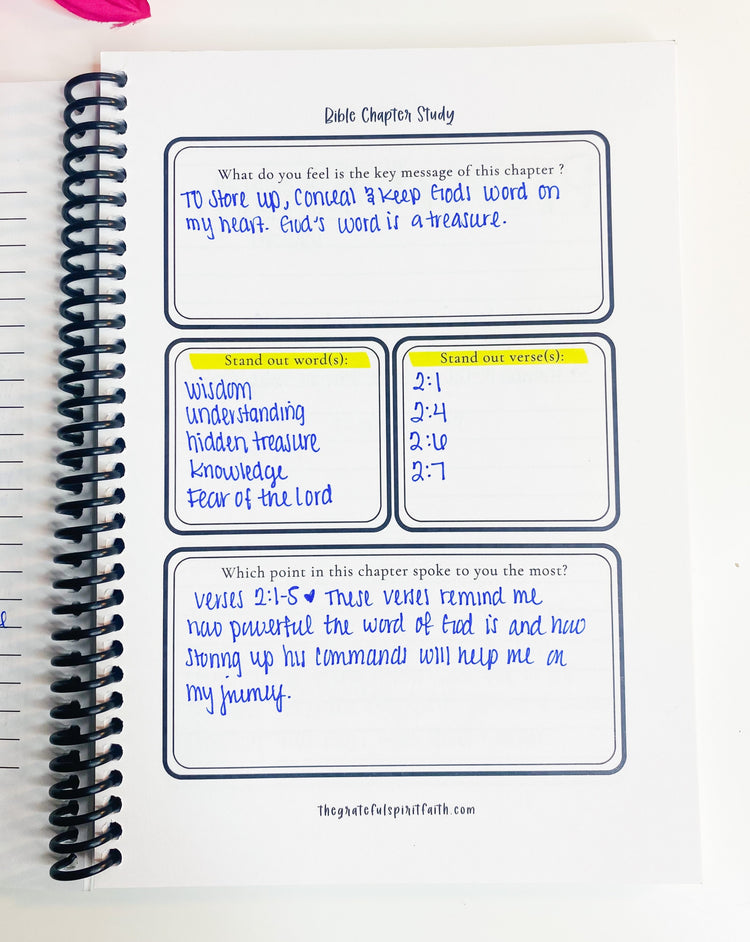 Bible Chapter Study
What do you feel is the key message of this chapter ?
To store up, conceal & keep Gods word on
my heart. God's word is a treasure.
Stand out word(s):
wisdom
understanding
hidden treasure
knowledge
Fear of the Lord
Stand out verse(s):
2:1
2:4
2:6
2:7
Which point in this chapter spoke to you the most?
verses 2:1-5 ♥ These verses remind me
how powerful the word of God is and how
storing up his commands will help me on
my journey.
thegratefulspiritfaith.com